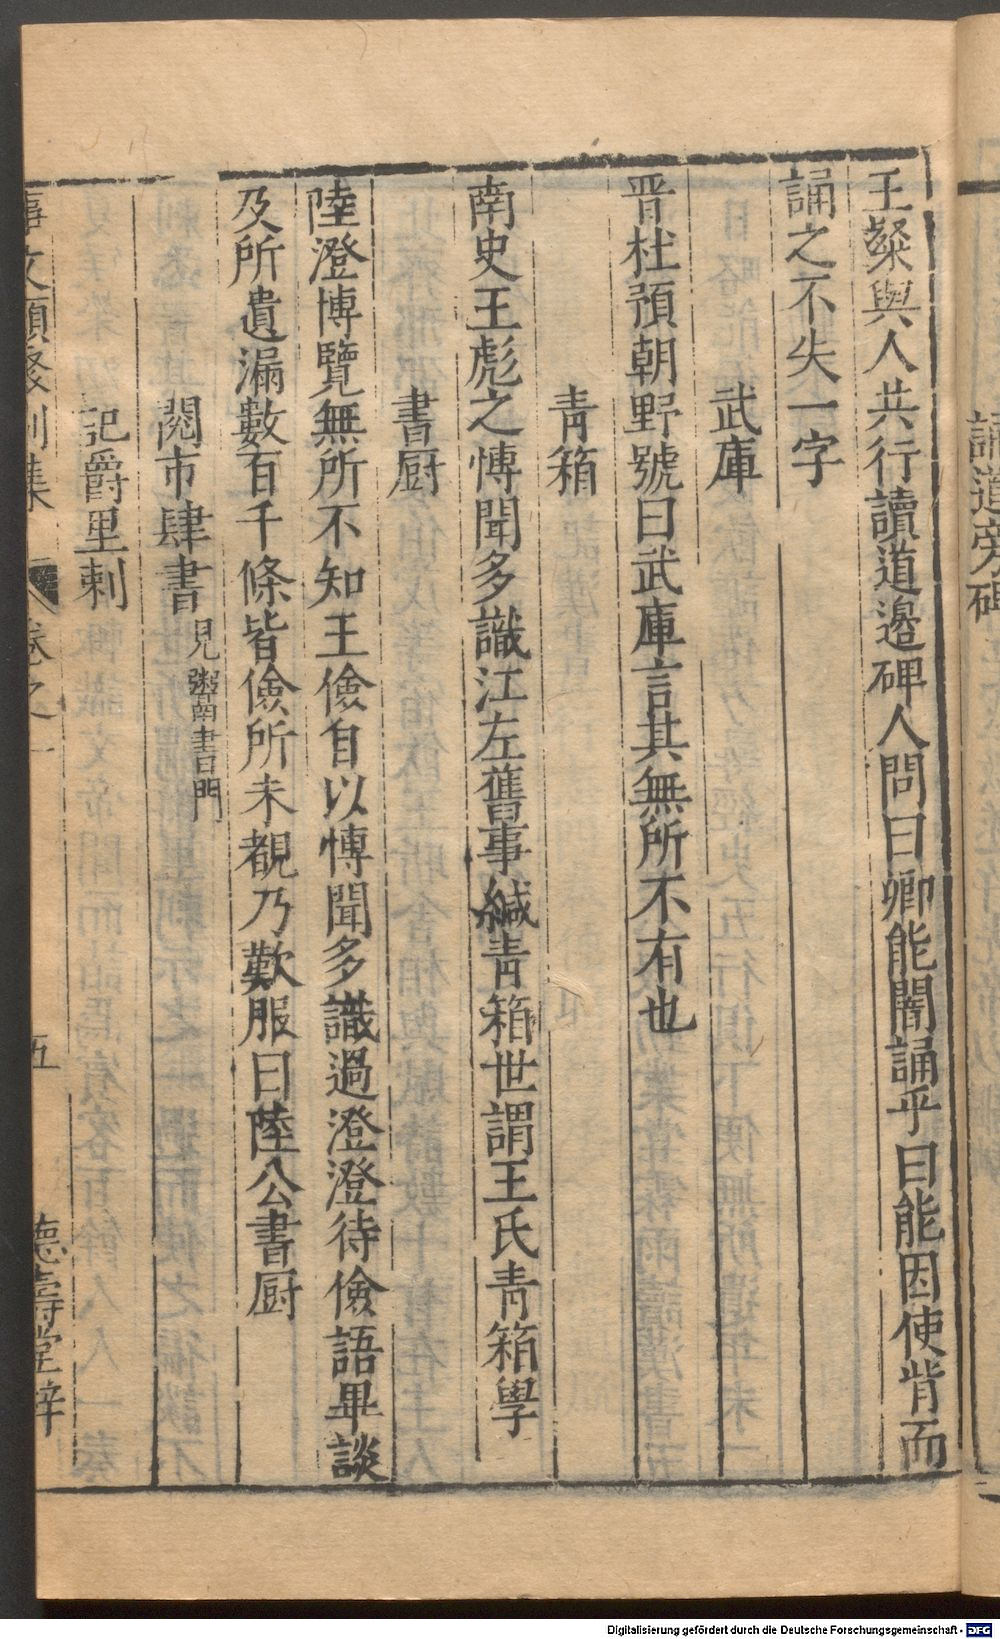 誦道旁碑
王粲與人共行讀道邊碑人問曰卿能闇誦乎曰能因使背而
誦之不失一字
武庫
晋杜預朝野號曰武庫言其無所不有也
青箱
南史王彪之博聞多識江左舊事緘青箱世謂王氏青箱學
書厨
陸澄博覽無所不知王儉自以博聞多識過澄澄待儉語畢談
及所遺漏數百千條皆儉所未覩乃歎服曰陸公書厨
閱市肆書見鬻書門
記爵里刺
事文類聚別集 卷之一 五 德壽堂梓
Digitalisierung gefördert durch die Deutsche Forschungsgemeinschaft - DFG